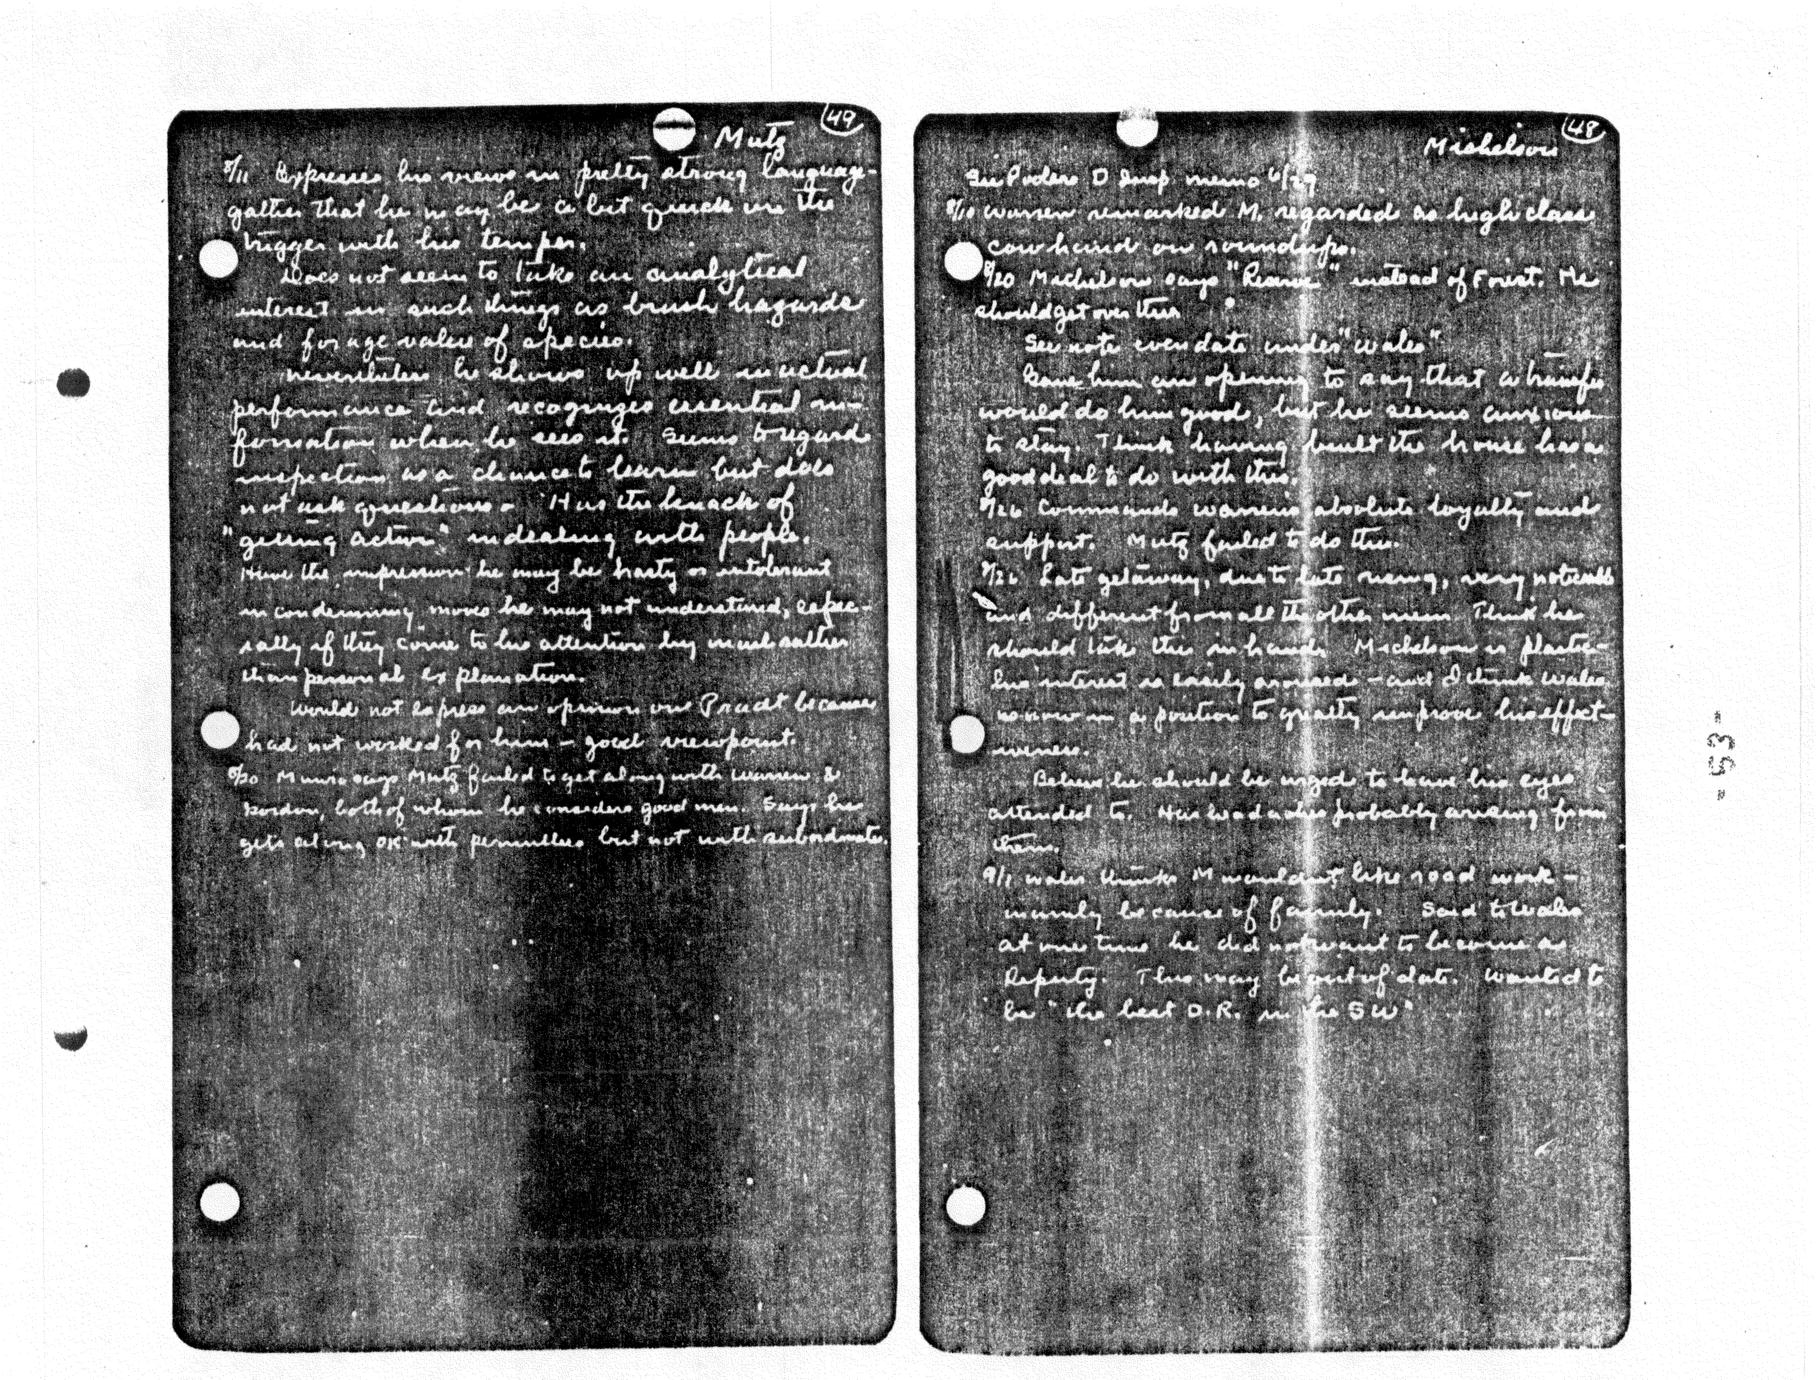 49
Mutz
8/11 Expresses his views in pretty strong language -
gather that he may be a bit quick on the
trigger with his temper.
Does not seem to take an analytical
interest in such things as brush hazards
and forage value of species.
Nevertheless he shows up well in actual
performance and recognizes essential in-
formation when he sees it. Seems to regard
inspection as a chance to learn but does
not ask questions. Has the knack of
"getting action" in dealing with people.
Have the impression he may be hasty or intolerant
in condemning moves he may not understand, espec-
ially if they come to his attention by mail rather
than personal explanation.
Would not express an opinion on because
had not worked for him - good viewpoint.
8/20 Munro says Mutz failed to get along with Warren &
Gordon, both of whom he considers good men. Says he
gets along OK with permittees but not with subordinates.
48
Michelson
See Poolers D Insp. memo 6/29
8/10 Warren remarked M. regarded as high class
cow hand on roundups.
8/20 Michelson says "Reserve" instead of Forest. He
should get over this
See note even date under "Wales"
Gave him an opening to say that a transfer
would do him good, but he seems anxious
to stay. Think having built the house has a
good deal to do with this.
8/26 Commands Warrens absolute loyalty and
support. Mutz failed to do this.
Late getaway, due to late rising, very noticeable
and different from all the other men. Think he
should take this in hand. Michelson is plastic -
his interest is easily aroused - and I think Wales
is now in a position to greatly improve his effect-
iveness.
Believe he should be urged to have his eyes
attended to. His headaches probably arising from
them.
9/1 Wales thinks M wouldn't like road work -
mainly because of family. Said to Wales
at one time he did not want to become a
Deputy. This may be out of date. Wanted to
be "the best D.R. in the SW"
- 53 -